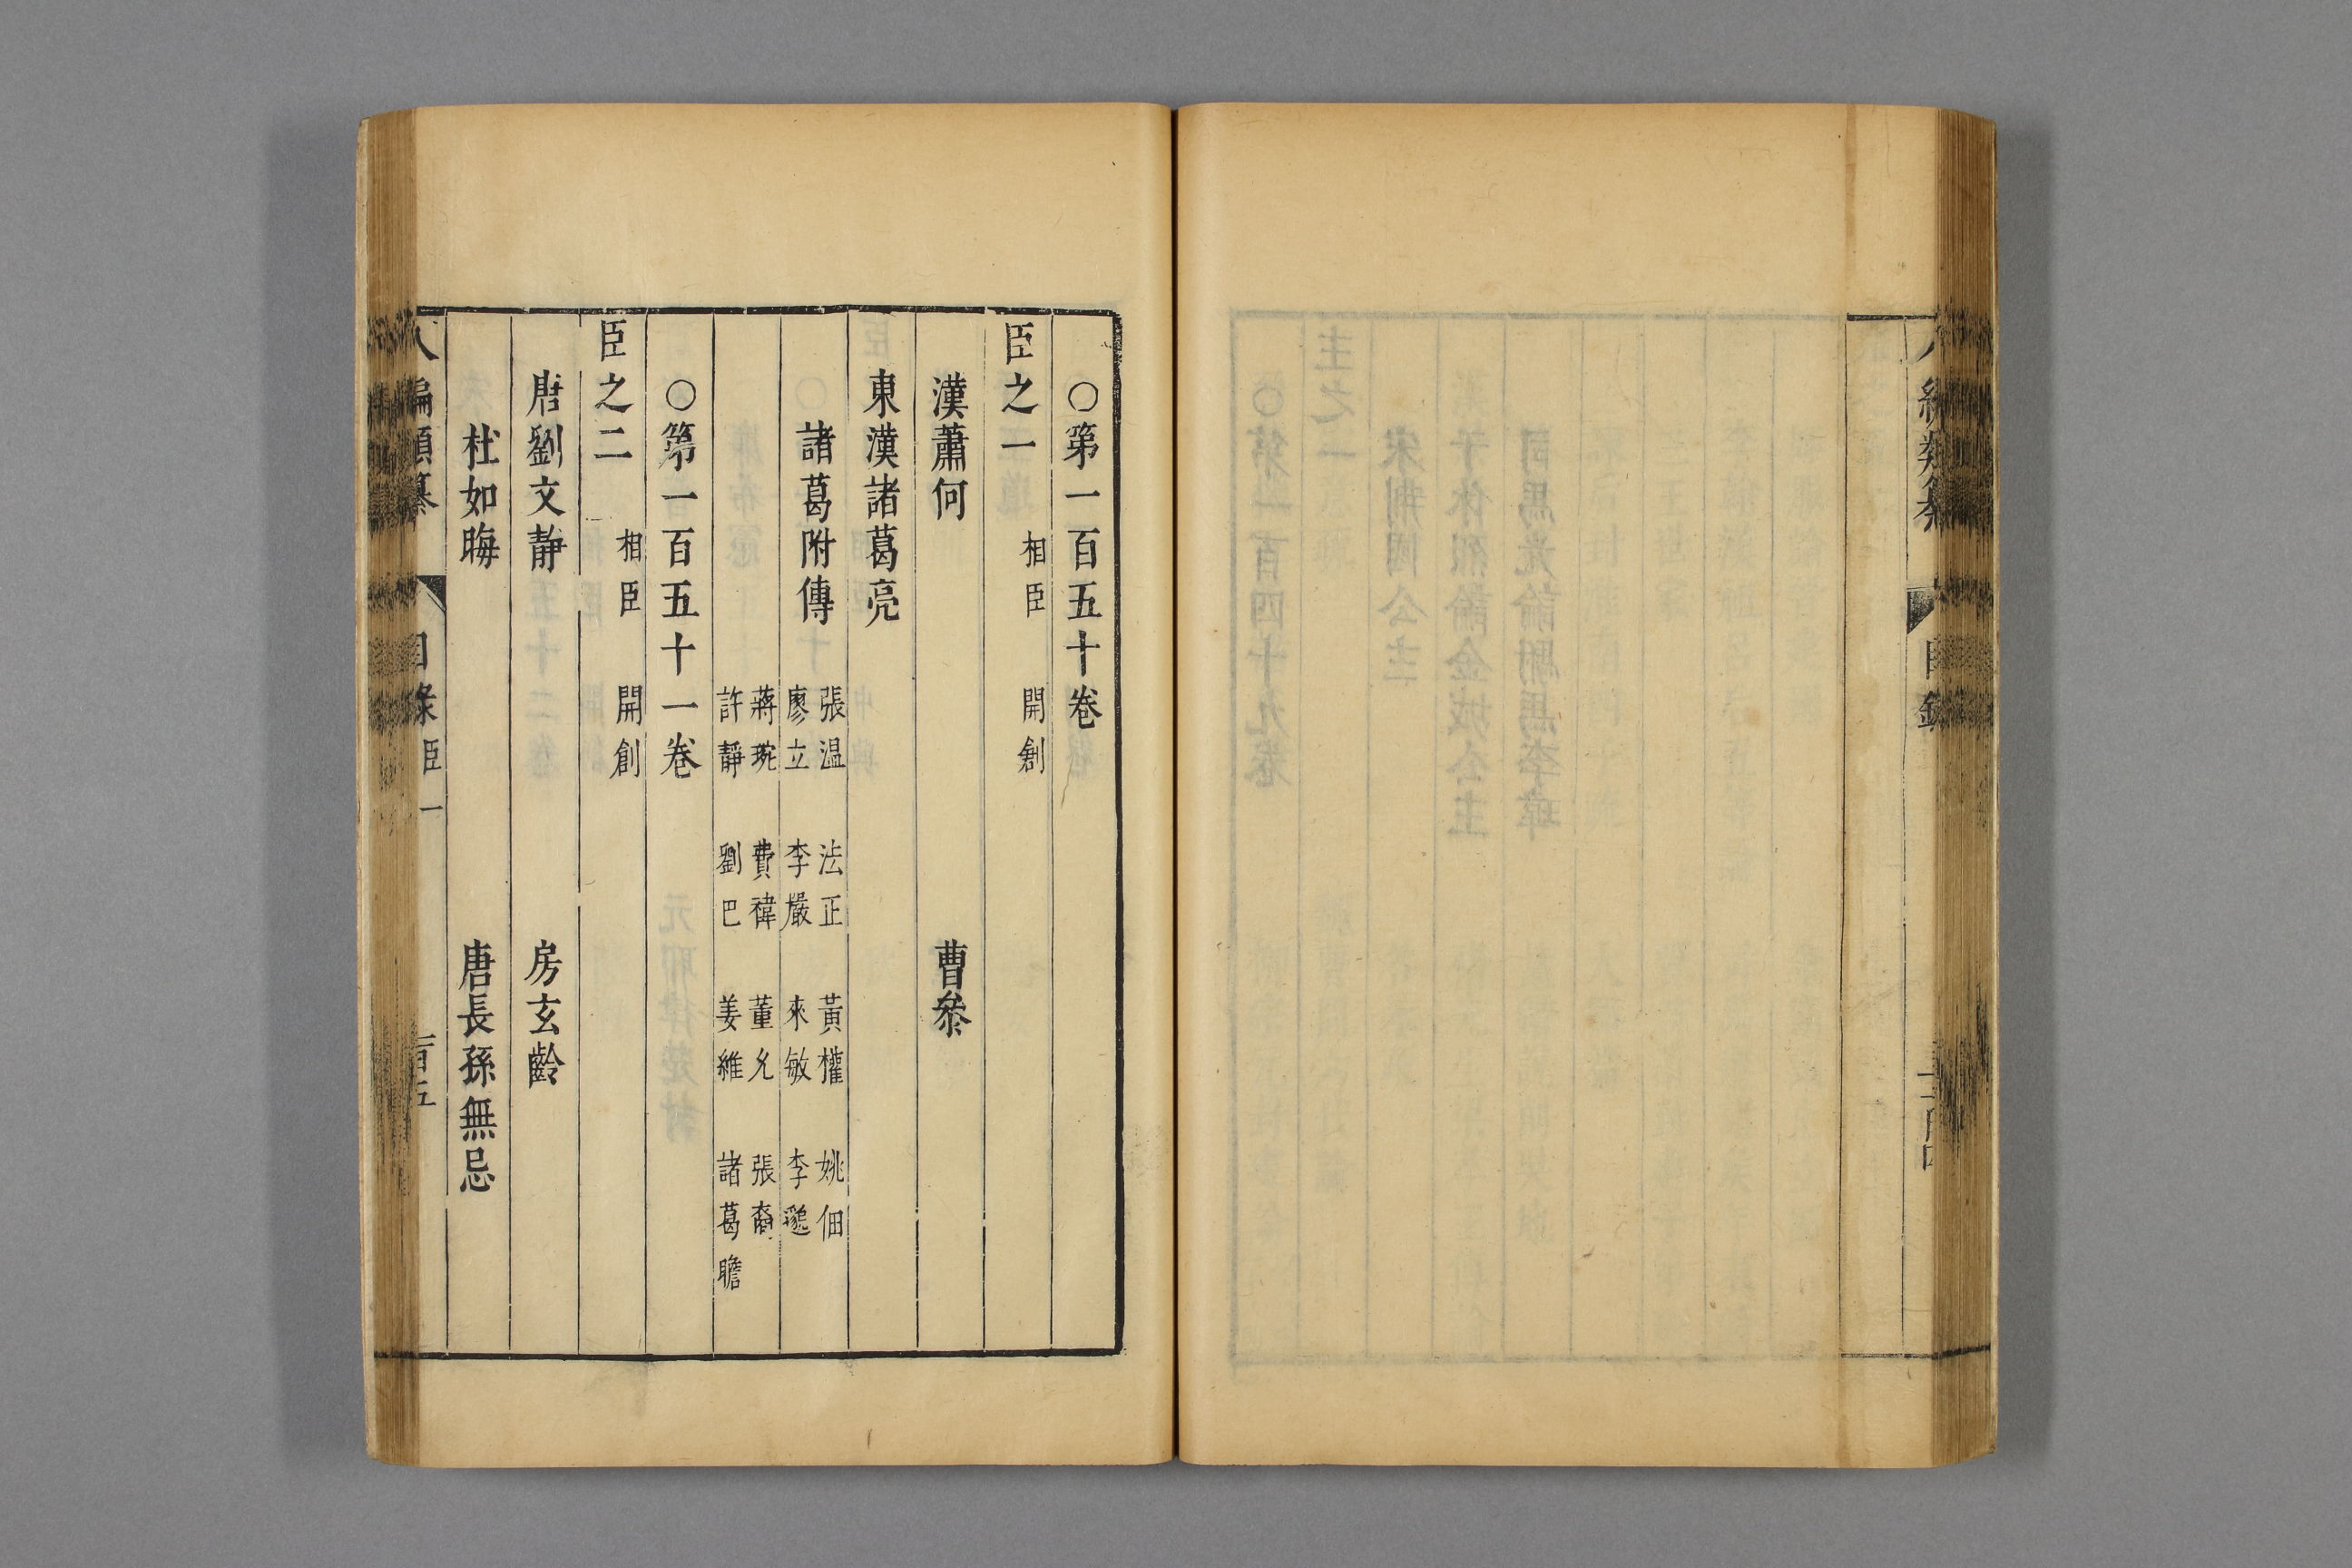 八編類纂 目錄
○第一百五十卷
臣之一 相臣 開創
漢蕭何 曹參
東漢諸葛亮
諸葛附傳 張温 法正 黃權 姚伷
廖立 李嚴 來敏 李邈
蔣琬 費禕 董允 張裔
許靜 劉巴 姜維 諸葛瞻
○第一百五十一卷
臣之二 相臣 開創
唐劉文靜 房玄齡
杜如晦 唐長孫無忌
八編類纂 目錄 臣一 一百五